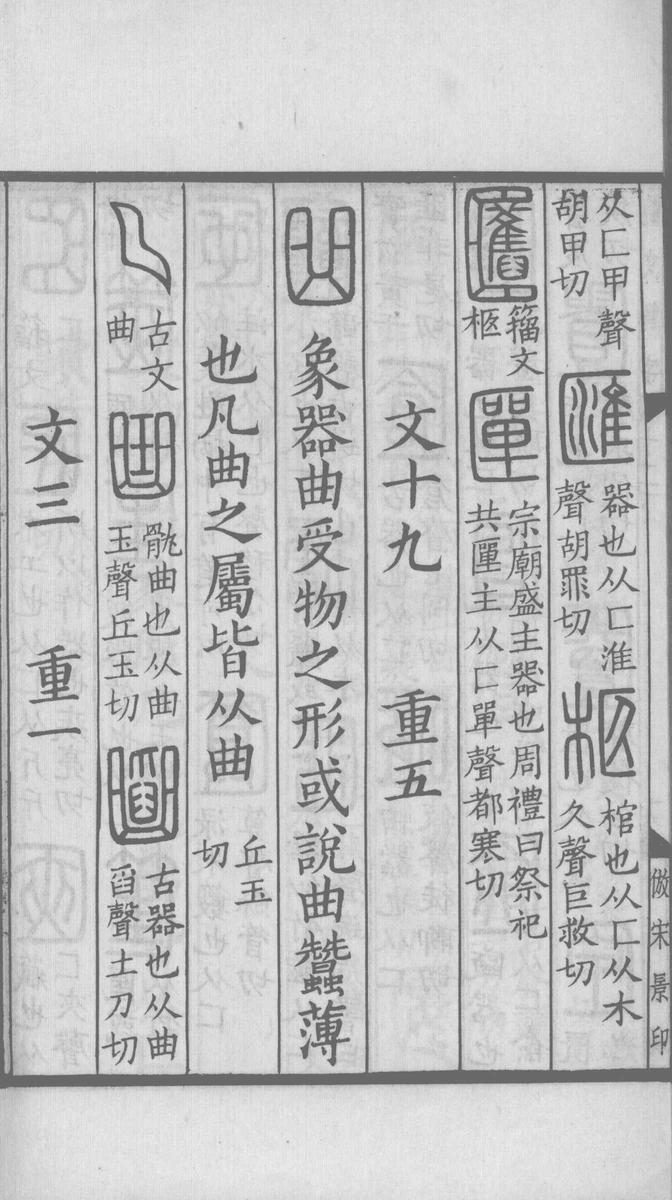 倣宋景印
从匚甲聲胡甲切 匯 器也从匚淮聲胡罪切 柩 棺也从匚从木久聲巨救切
匶 籀文柩 匰 宗廟盛主器也周禮曰祭祀共匰主从匚單聲都寒切
文十九 重五
曲 象器曲受物之形或說曲蠶薄
也凡曲之屬皆从曲 丘玉切
古文曲 骫曲也从曲玉聲丘玉切 古器也从曲舀聲土刀切
文三 重一